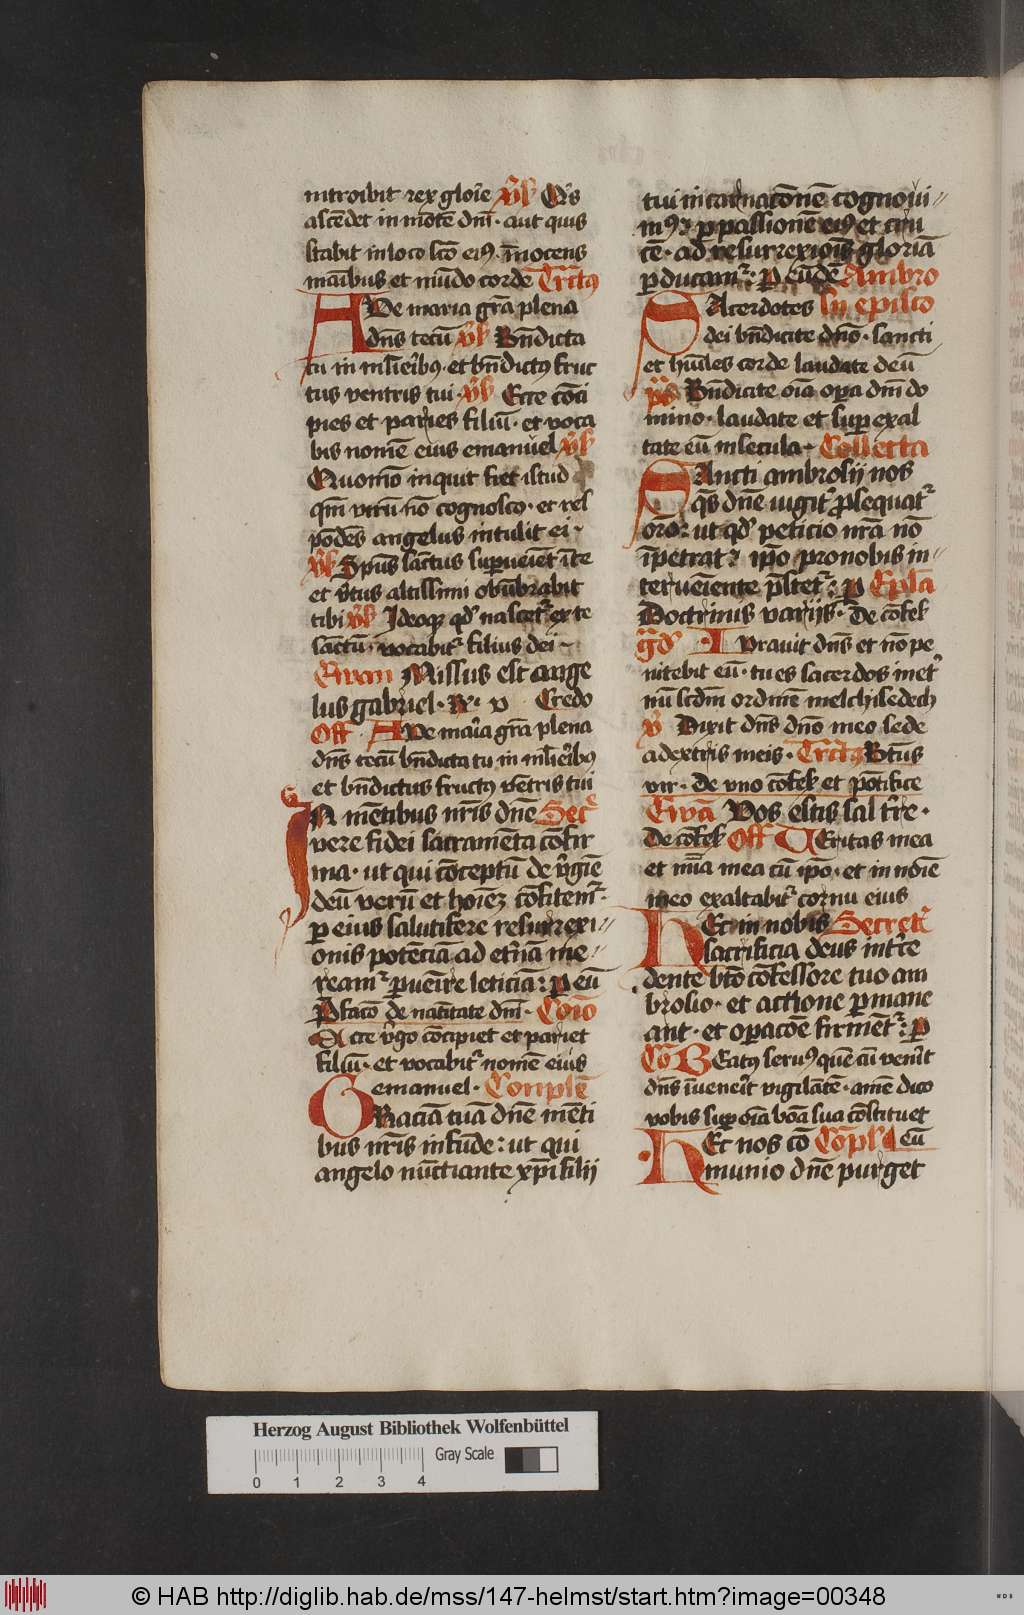 introibit rex gloīe ṽß Q̇s
ascēdet in mōte dnī · aut quis
stabit in loco scō eiꝰ · īnocens
manibus et mūdo corde Trctꝰ
AVe maria gr̄a plena
dn̄s tecū ṽß Bn̄dicta
tu in mulieribꝰ · et bn̄dictꝰ fruc
tus ventris tui · ṽß Ecce cōci
pies et paries filiū · et voca
bis nomē eius emanuel ṽß
Quomō inquit fiet istud
qm̄ virū nō cognosco · et res
pōdēs angelus intulit ei ·
ṽß Spūs sanctus supueiet ī te
et v̄tus altissimi obūbrabit
tibi ṽß Ideoqꝫ qd' nascet᷑ ex te
sanctū · vocabit᷑ filius dei ·
Ewan Missus est ange
lus gabriel · R · v Credo
Off AVe mar̄ia gr̄a plena
dn̄s tecū bn̄dicta tu in mulieribꝰ
et bn̄dictus fructꝰ vētris tui
IN mētibus nr̄is dn̄e Sec᷑
vere fidei sacramēta cōfir
ma · ut qui cōceptū de v̄gīe
deū verū et hoīeꝫ cōfitem᷑ ·
ꝑ eius salutifere resurrexi//
onis potēciā ad et̄nā me//
ream᷑ ꝑuenīre leticiā : ꝑ eū
Pfacō de natītate dnī · Cōiō
Ecce v̄go cōcipiet et pariet
filiū · et vocabit᷑ nomē eius
emanuel · Complē
GRaciā tuā dn̄e mēti
bus nr̄is infūde : ut qui
angelo nūctiante xp̄i filij
tui incarnacōnē cognoui//
mꝰ ꝑ passionē eiꝰ et cru
cē · ad resurrexiois gloriā
ꝑducam᷑ · ꝑ eūdē Ambro
SAcerdotes In episco
dei bn̄dicite dn̄o · sancti
et hūiles corde laudate deū
ps Bn̄dicite oīa oꝑa dnī do
mino · laudate et suꝑexal
tate eū in secula · Collecta
SAncti ambrosij nos
qs dn̄e iugit᷑ ꝓsequat᷑
orō : ut qd' peticio nr̄a nō
īpetrat · ip̄o pro nobis in//
terueniente p̄stet᷑ : ꝑ Eplā
Doctrinis varijs · De cōfeß
Gd' Iuravit dn̄s et nō pe
nitebit eū · tu es sacerdos inet᷑
nū scdm ordinē melchisedech
ṽ Dixit dn̄s dn̄o meo sede
a dextris meis · Trctꝰ Btūs
vir · De vno cōfeß et pōtifice
Ewā Vos estis sal tr̄re ·
De cōfeß Off VEritas mea
et mīa mea cū ip̄o · et in noīe
meo exaltabit᷑ cornu eius
HEc in nobis Secret᷑
sacrificia deus int̄ce
dente btō cōfessore tuo am
brosio · et actione ꝑmane
ant · et oꝑacōe firmēt᷑ : ꝑ
Cō BEatus seruꝰ quē cū venīt
dn̄s īuenēit vigilātē · amē dico
vobis suꝑ oīa bōa sua cōstituet
HEc nos cō Cōpl eū
munio dn̄e purget
Herzog August Bibliothek Wolfenbüttel
Gray Scale
0 1 2 3 4
© HAB http://diglib.hab.de/mss/147-helmst/start.htm?image=00348